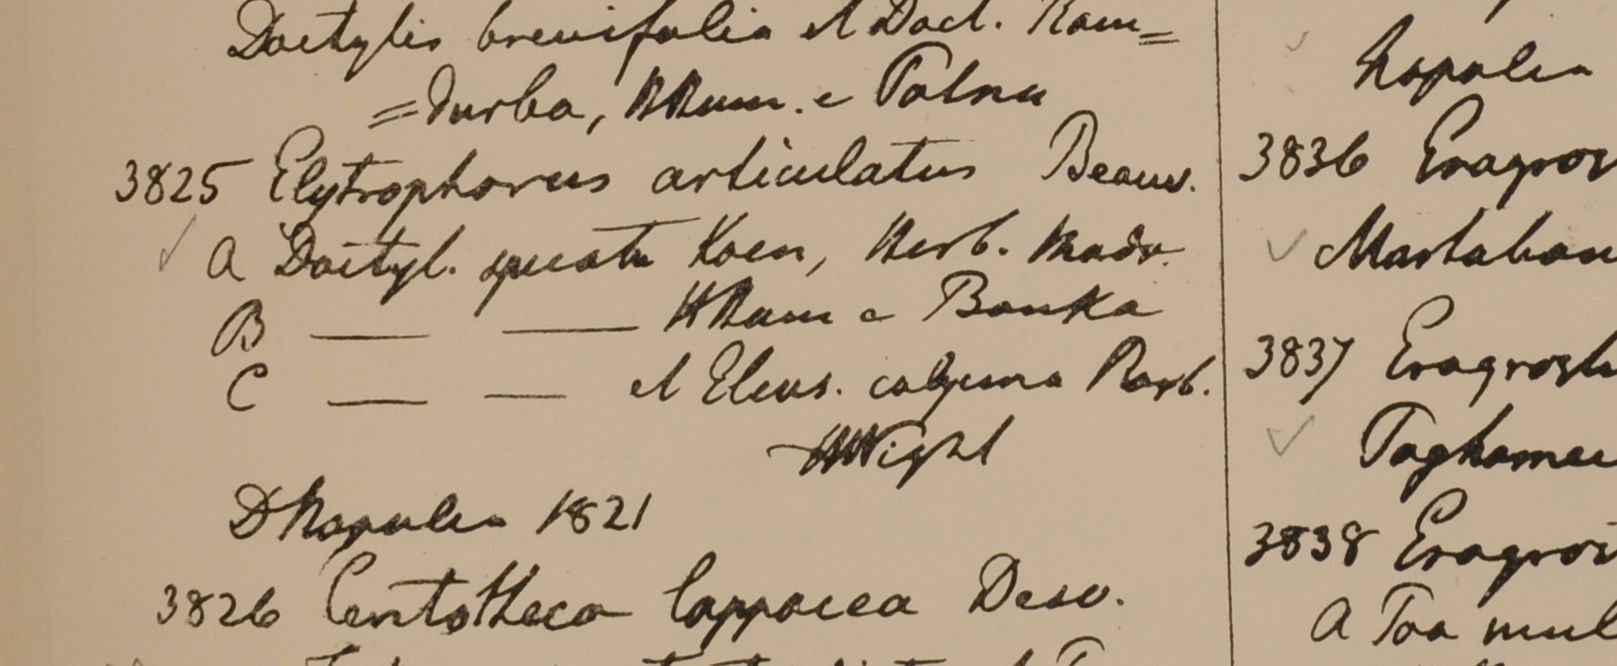 Dactylis brevifolia et Dact. Ram=
=durba, HHam. e Patna
3825 Elytrophorus articulatus Beauv.
a Dactyl. spicata Koen, Herb. Madr.
B — — HHam e Banka
C — — et Eleus. calycina Roxb.
HWight
D Napalia 1821
3826 Centotheca lappacea Desv.
Napalia
3836 Eragros
Martaban
3837 Eragrosti
Taghamei
3838 Eragros
a Poa mul